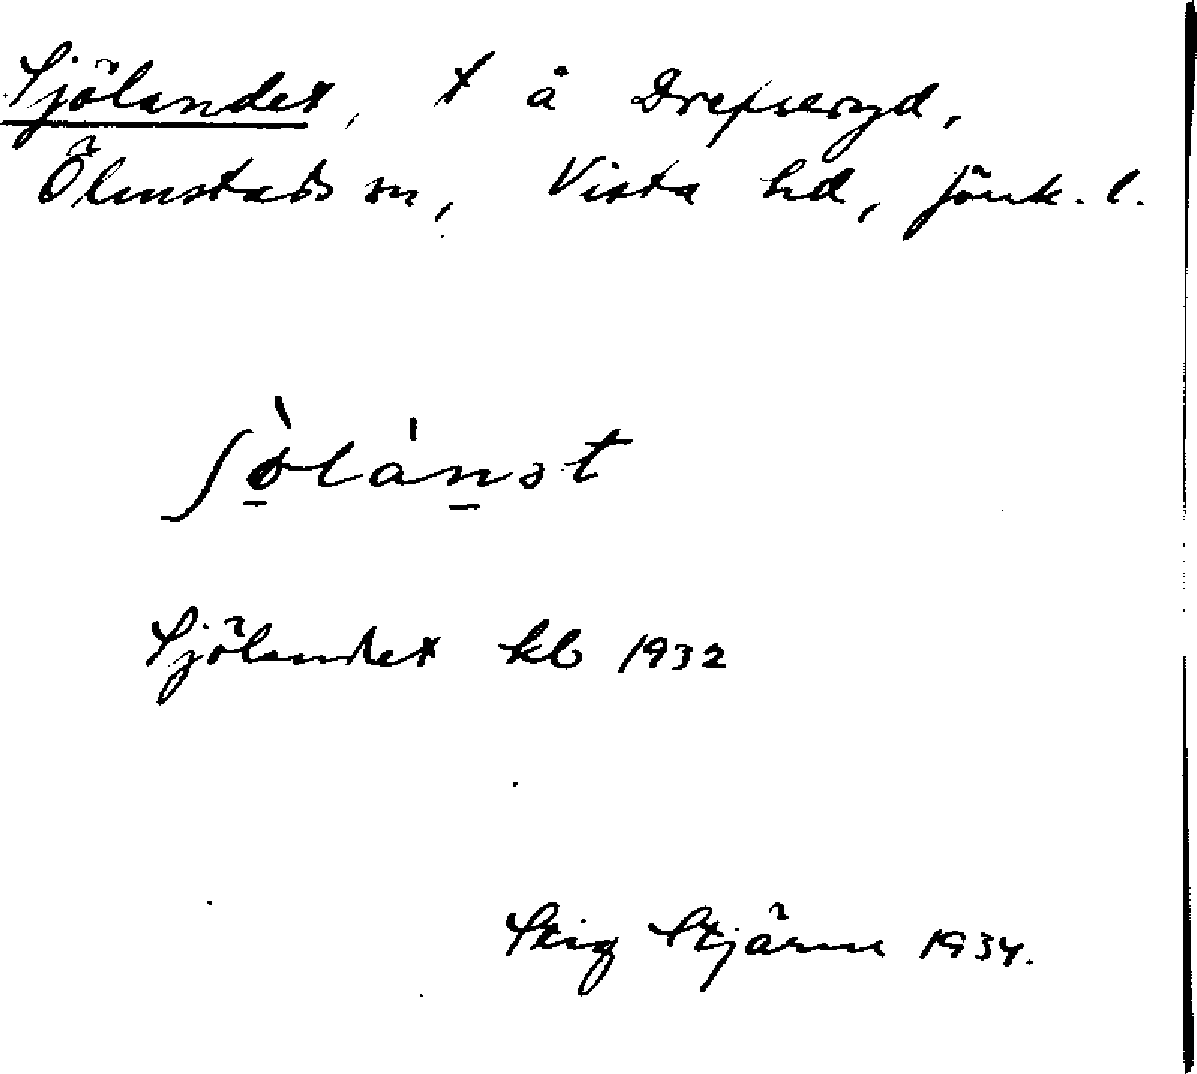 Sjölandet, t å Drefseryd,
Ölmstads sn, Vista hd, Jönk. l.
ʃø̠̀lán̠ət
Sjölandet kb 1932
Stig Stjärne 1934.